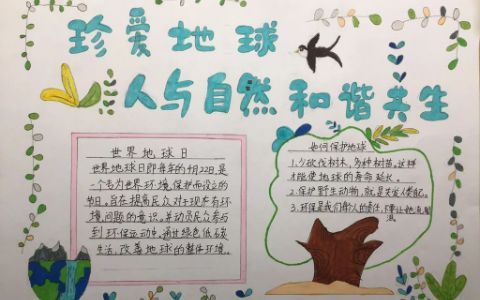 珍爱地球
人与自然和谐共生
世界地球日
世界地球日即每年的4月22日,是
一个专为世界环境保护而设立的
节日,旨在提高民众对于现有环
境问题的意识,并动员民众参与
到环保运动中,通过绿色低碳
生活,改善地球的整体环境。
如何保护地球
1.少砍伐树木,多种树苗,这样
才能使地球的寿命延长。
2.保护野生动物,就是关爱人类自己。
3.环保是我们每个人的责任,不要让她